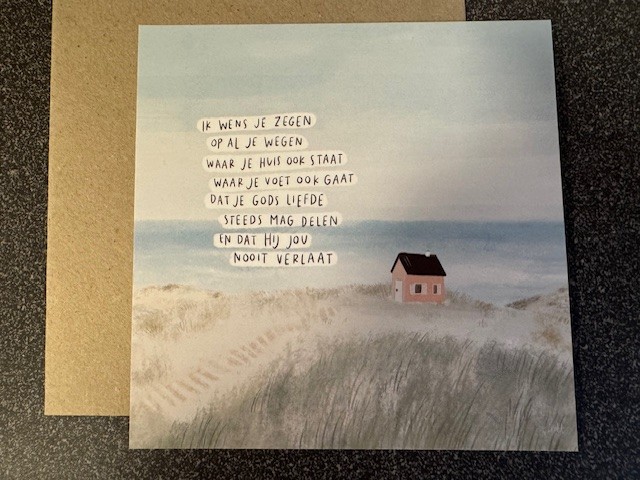 IK WENS JE ZEGEN
OP AL JE WEGEN
WAAR JE HUIS OOK STAAT
WAAR JE VOET OOK GAAT
DAT JE GODS LIEFDE
STEEDS MAG DELEN
EN DAT HIJ JOU
NOOIT VERLAAT